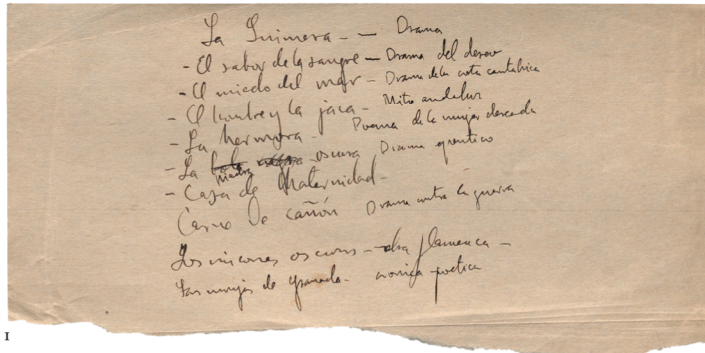 La Quimera - - Drama
- El sabor de la sangre - Drama del deseo
- El miedo del mar - Drama de la costa cantabrica
- El hombre y la jaca - Mito andaluz
- La hermosa - Poema de la mujer deseada
- La bola negra madre oscura Drama
- Casa de Maternidad -
Carne de cañón Drama contra la guerra
Los rincones oscuros - obra flamenca -
Las monjas de Granada - cronica poetica
I